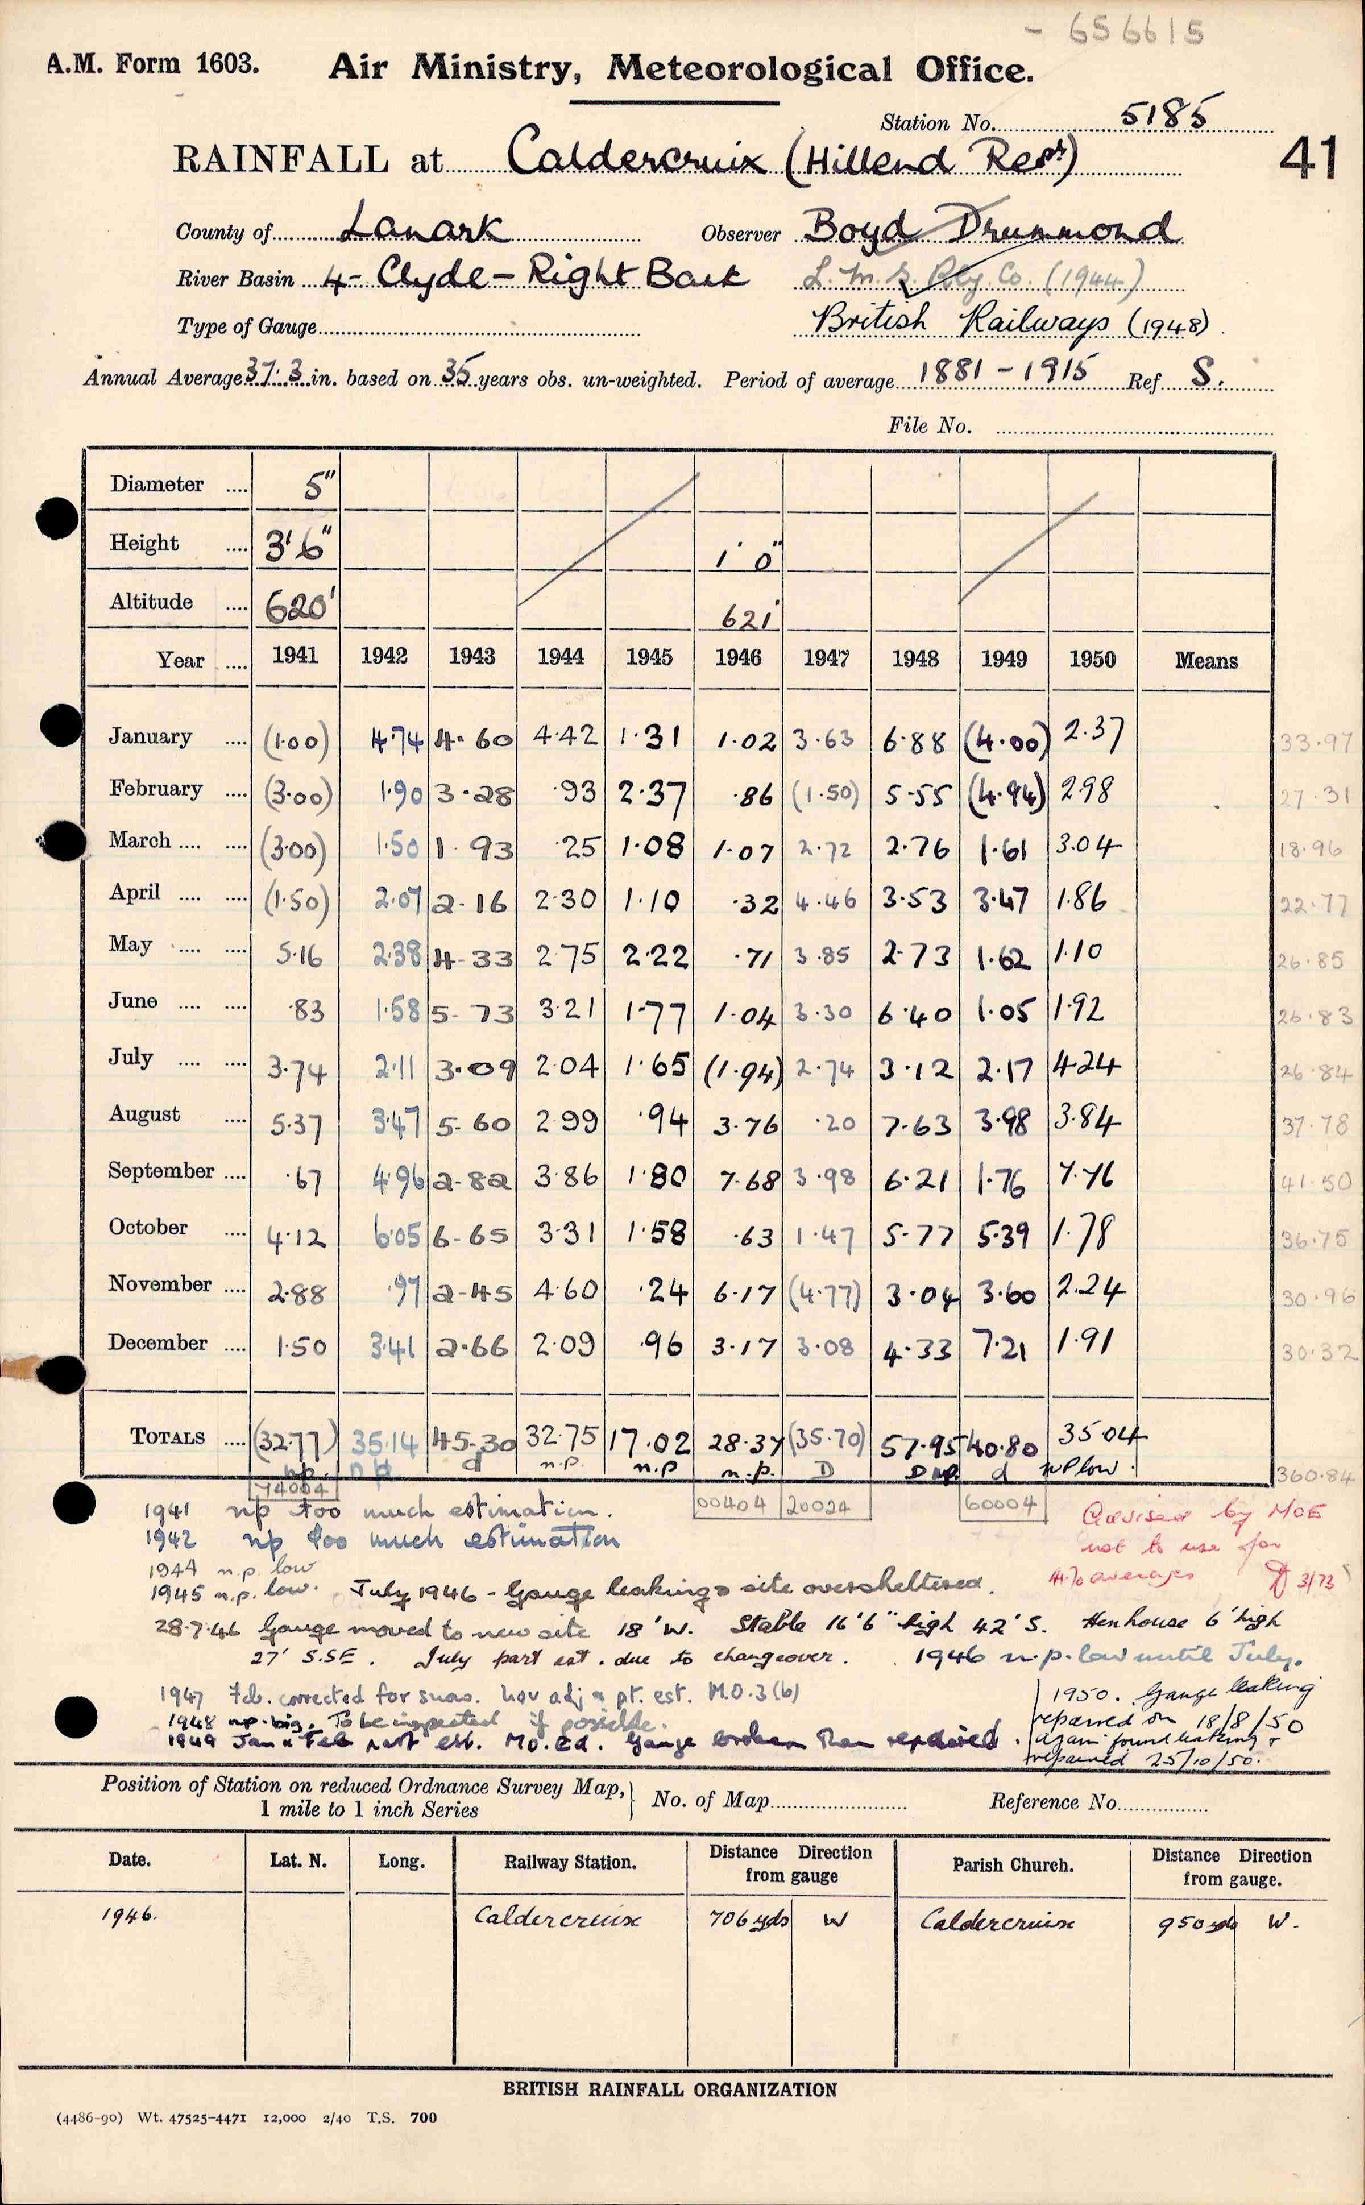 - 656615
A.M. Form 1603. Air Ministry, Meteorological Office.
Station No. 5185
41
RAINFALL at Caldercruix (Hillend Resr)
County of Lanark Observer Boyd Drummond
River Basin 4 - Clyde - Right Bank L.M.S. Rly Co. (1944)
Type of Gauge British Railways (1948)
Annual Average 37.3 in. based on 35 years obs. un-weighted. Period of average 1881 - 1915 Ref S.
File No.
Diameter .... 5"
Height .... 3'6" 1'0"
Altitude .... 620' 621'
Year .... 1941 1942 1943 1944 1945 1946 1947 1948 1949 1950 Means
January .... (1.00) 4.74 4.60 4.42 1.31 1.02 3.63 6.88 (4.00) 2.37 33.97
February .... (3.00) 1.90 3.28 .93 2.37 .86 (1.50) 5.55 (4.94) 2.98 27.31
March .... .... (3.00) 1.50 1.93 .25 1.08 1.07 2.72 2.76 1.61 3.04 18.96
April .... .... (1.50) 2.07 2.16 2.30 1.10 .32 4.46 3.53 3.47 1.86 22.77
May .... .... 5.16 2.38 4.33 2.75 2.22 .71 3.85 2.73 1.62 1.10 26.85
June .... .... .83 1.58 5.73 3.21 1.77 1.04 3.30 6.40 1.05 1.92 26.83
July .... .... 3.74 2.11 3.09 2.04 1.65 (1.94) 2.74 3.12 2.17 4.24 26.84
August .... 5.37 3.47 5.60 2.99 .94 3.76 .20 7.63 3.98 3.84 37.78
September .... .67 4.96 2.82 3.86 1.80 7.68 3.98 6.21 1.76 7.76 41.50
October .... 4.12 6.05 6.65 3.31 1.58 .63 1.47 5.77 5.39 1.78 36.75
November .... 2.88 .97 2.45 4.60 .24 6.17 (4.77) 3.04 3.60 2.24 30.96
December .... 1.50 3.41 2.66 2.09 .96 3.17 3.08 4.33 7.21 1.91 30.32
TOTALS .... (32.77) 35.14 45.30 32.75 17.02 28.37 (35.70) 57.95 40.80 35.04
np. np d n.p. n.p n.p. D D np. d NP low. 360.84
74004 00404 20024 60004
1941 np too much estimation.
1942 np too much estimation
1944 n.p. low
1945 n.p. low. July 1946 - Gauge leaking & site oversheltered.
Advised by MOE
not to use for
averages 3/73
28.7.46 Gauge moved to new site 18' W. Stable 16'6" high 42' S. Hen house 6' high
27' S.SE. July part est. due to changeover. 1946 n.p. low until July.
1947 Feb. corrected for snow. Nov adj & pt. est. M.O.3(b)
1948 np. big. To be inspected if possible.
1949 Jan & Feb part est. Gauge broken then repaired.
1950. Gauge leaking
repaired on 18/8/50
Again found leaking &
repaired 25/10/50.
Position of Station on reduced Ordnance Survey Map, 1 mile to 1 inch Series } No. of Map Reference No.
Date. Lat. N. Long. Railway Station. Distance Direction from gauge Parish Church. Distance Direction from gauge.
1946. Caldercruix 706 yds W Caldercruix 950 yds W.
BRITISH RAINFALL ORGANIZATION
(4486-90) Wt. 47525-4471 12,000 2/40 T.S. 700